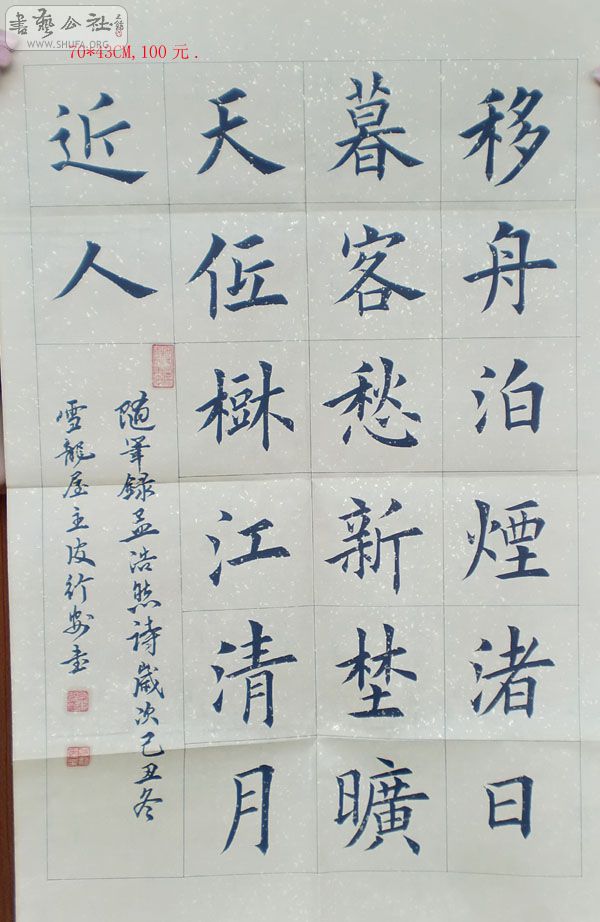 書藝公社
WWW.SHUFA.ORG
70*43CM,100 元.
移舟泊煙渚日
暮客愁新埜曠
天低樹江清月
近人
隨筆録孟浩然詩歲次己丑冬
雪龍屋主皮行安書